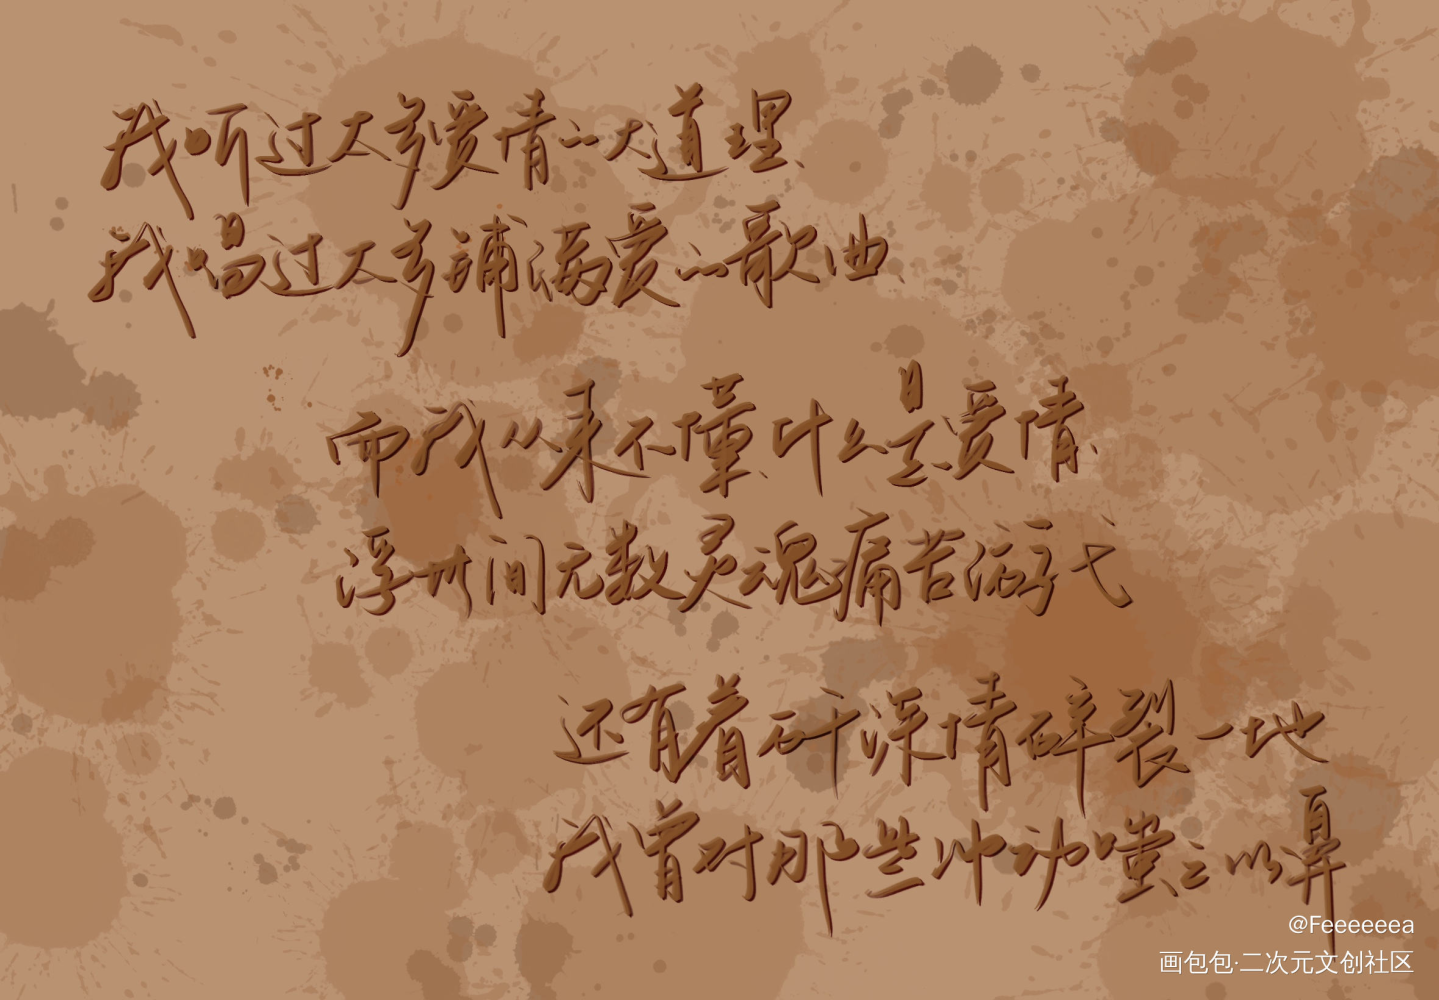 我听过太多爱情的大道理
我唱过太多铺满爱的歌曲
而我从来不懂什么是爱情
浮世间无数灵魂痛苦添弋
还有着矸深情碎裂一地
我曾对那些冲动嗤之以鼻
@Feeeeeeea
画包包·二次元文创社区